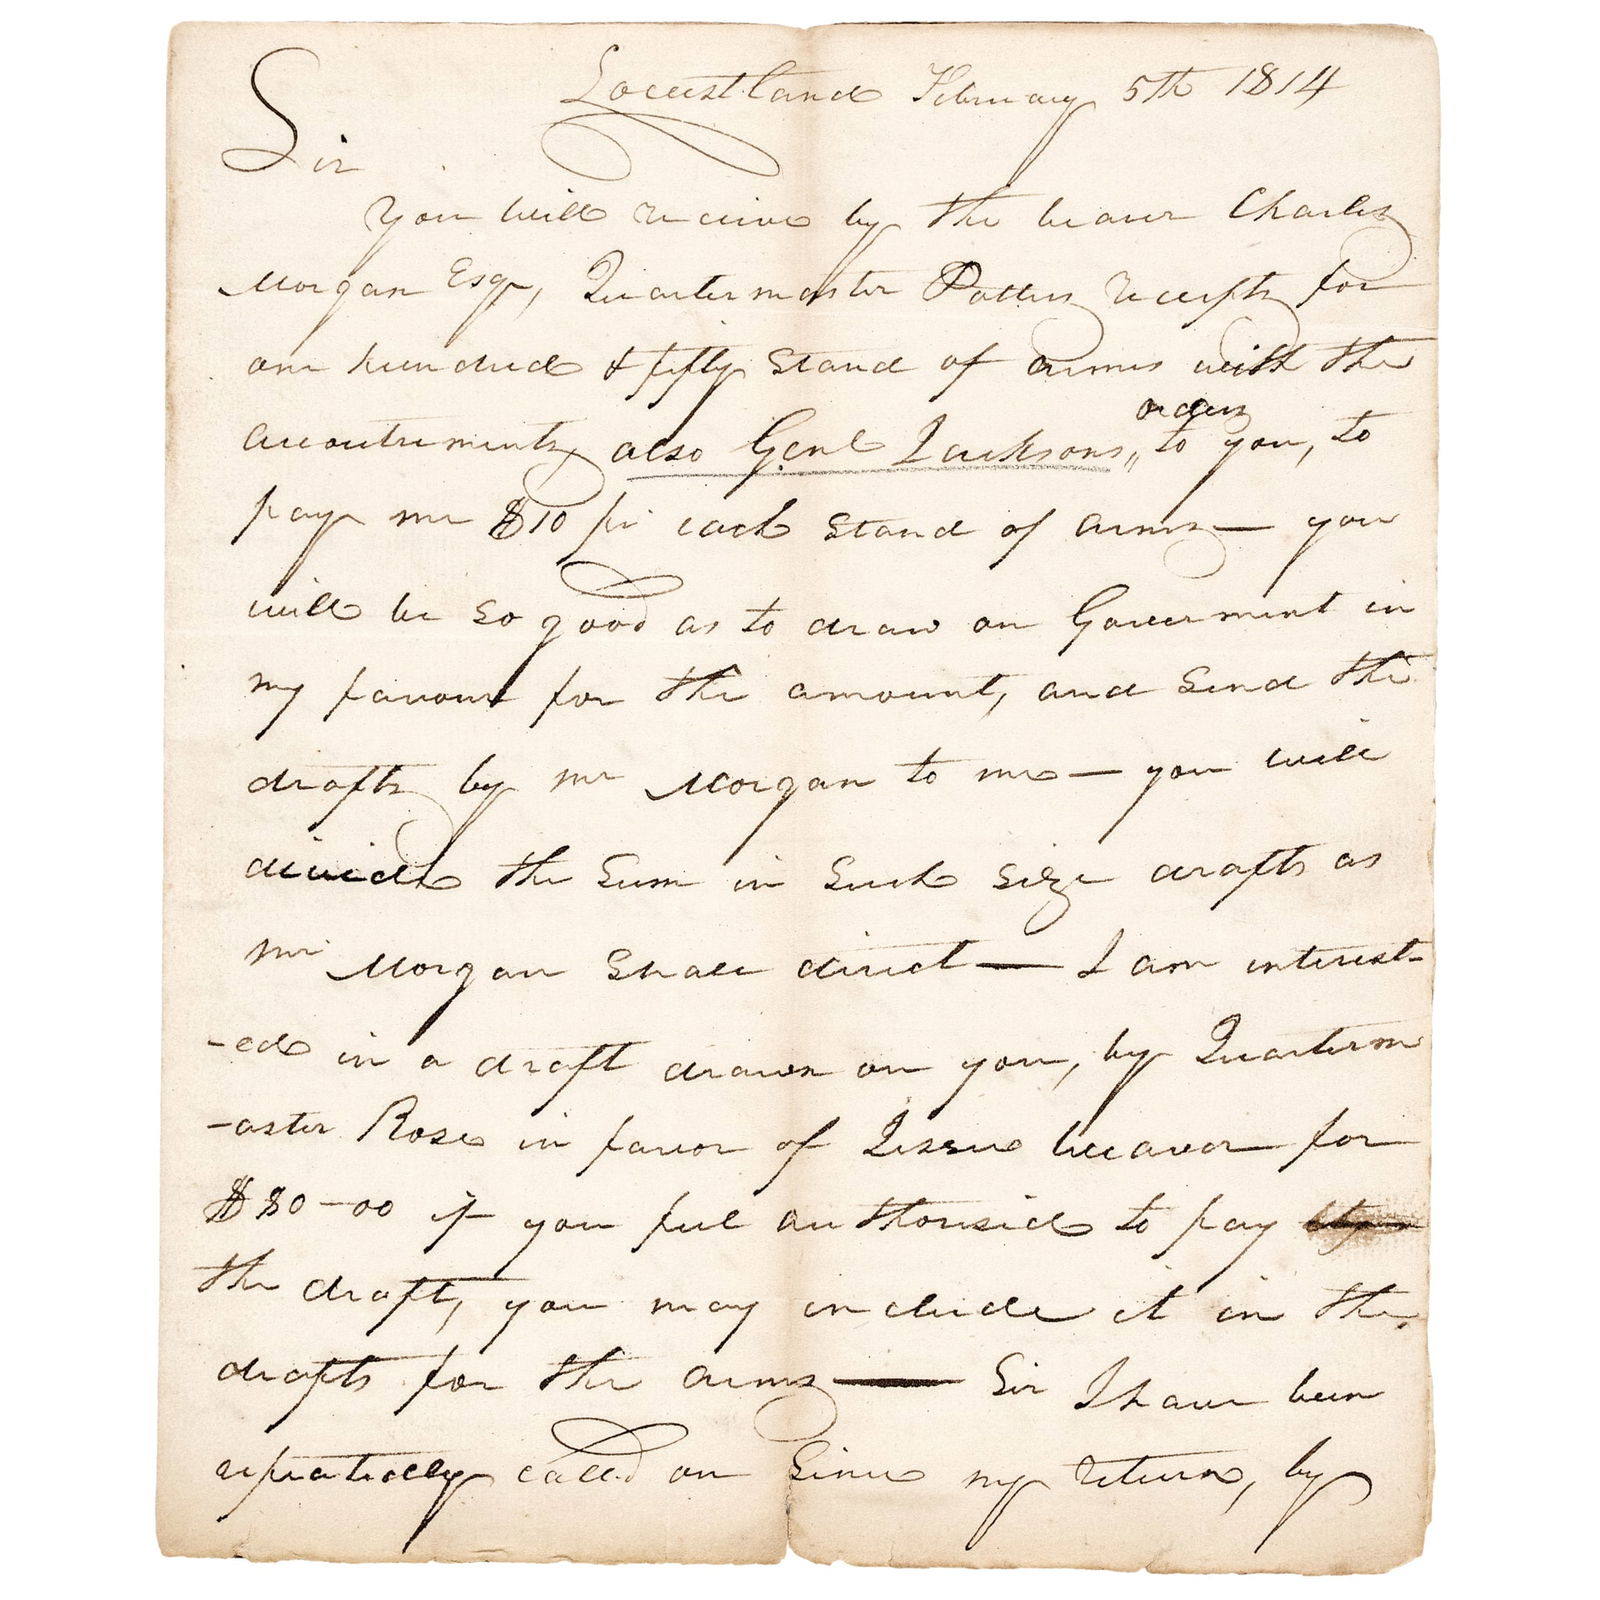 Locustland February 5th 1814
Sir
You will receive by the bearer Charles
Morgan Esqr, Quartermaster Potters receipts for
one hundred & fifty Stand of arms with the
accoutrements, also Genl Jacksons,, orders to you, to
pay me $10 pr each Stand of arms — you
will be so good as to draw on Government in
my favour for the amount, and Send the
drafts by mr Morgan to me — you will
divide the Sum in Such Size drafts as
mr Morgan Shall direct — I am interest-
-ed in a draft drawn on you, by Quarterm
-aster Rose in favor of Jessee beavor for
$80-00 if you feel authorised to pay
the draft, you may include it in the
drafts for the arms — Sir I have been
repeatedly called on Since my return, by